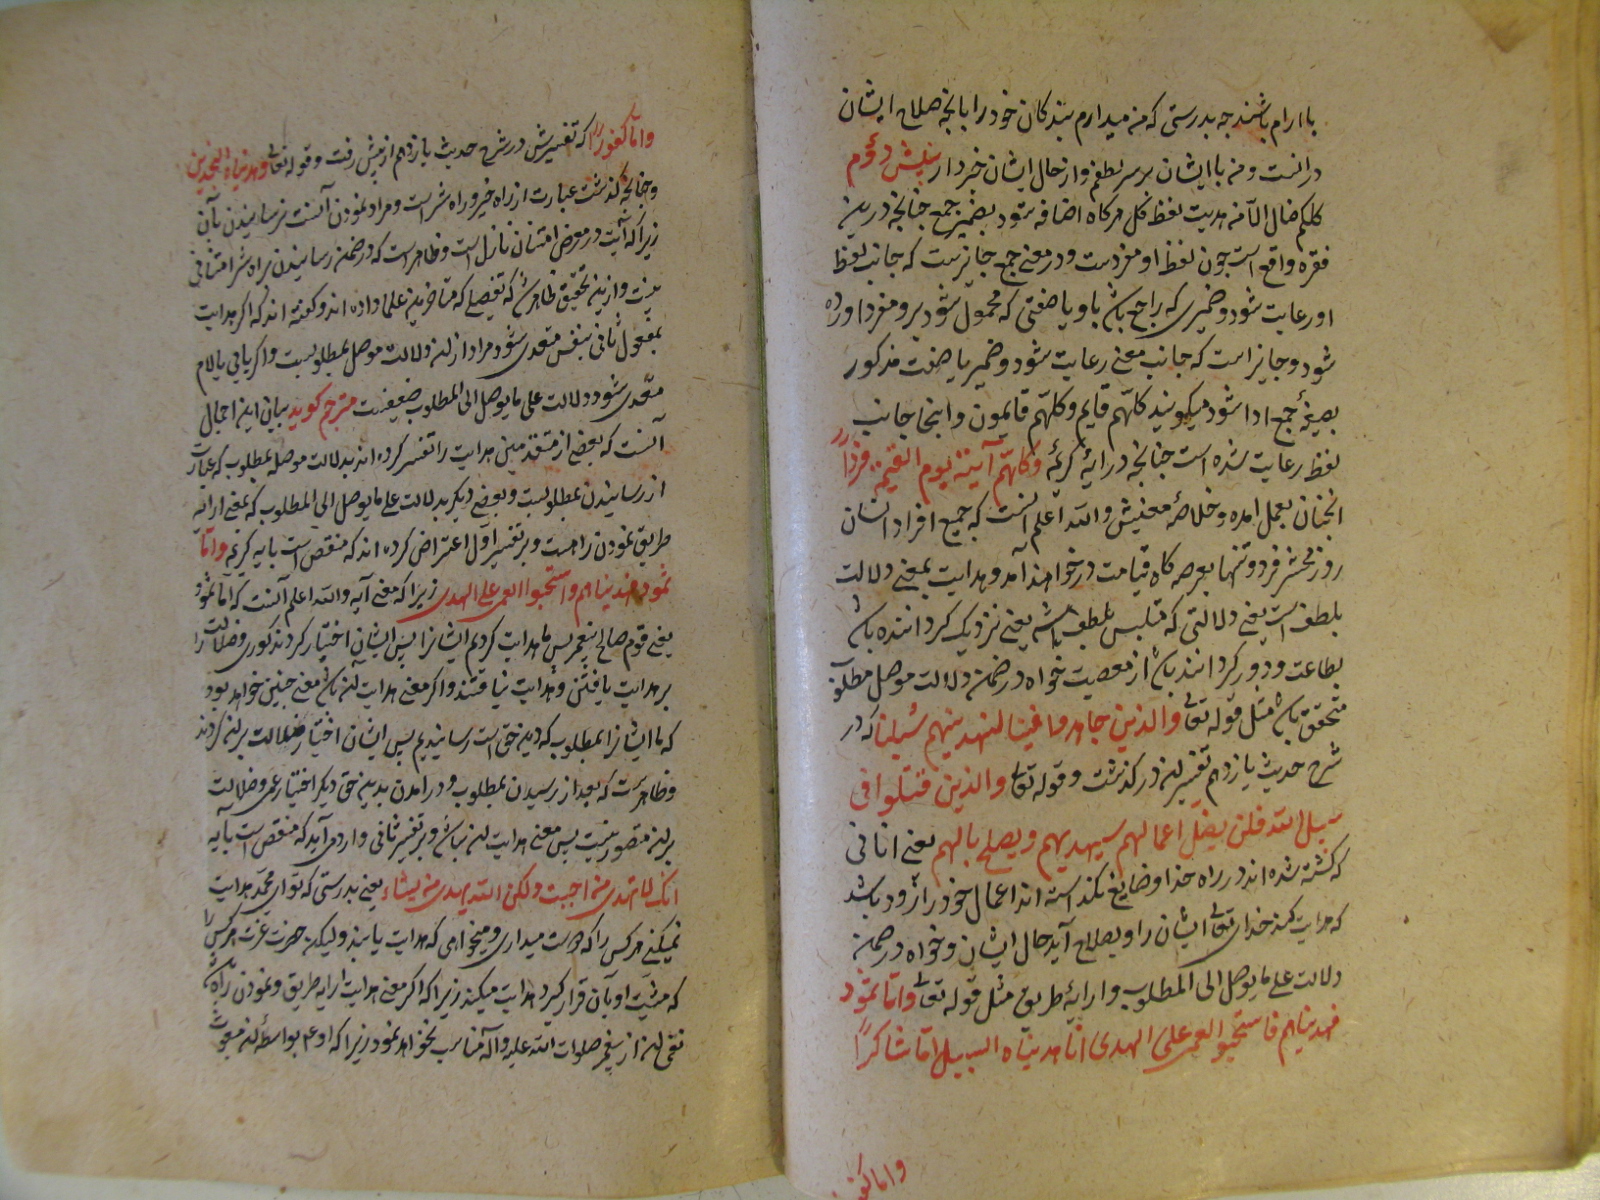 باارام باشند چه بدرستی که من میدارم بندکان خود را بانچه صلاح ایشان
در انست و من باایشان برسر لطفم و از حال ایشان خبردار بینش دؤم
کلکم ضال الا من هدیت لفظ کل هرکاه اضافه شود بضمیر جمع چنانچه درین
فقره واقع است چون لفظ او مفردست و در معنی جمع جایزست که جانب لفظ
او رعایت شود و ضمیری که راجع باشد باو یا صفتی که محمول شود برو مفرد اورده
شود و جایز است که جانب معنی رعایت شود و ضمیر یا صفت مذکور
بصیغهٔ جمع ادا شود میکویند کلهم قایم و کلهم قایمون و اینجا جانب
لفظ رعایت شده است چنانچه در ایهٔ کریمهٔ وکلهم آتیه یوم القیمة فردا
انچنان بعمل امده و خلاصهٔ معنیش والله اعلم انست که جمیع افراد انسان
روز محشر فرد و تنها بعرصه کاه قیامت در خواهند آمد و هدایت بمعنی دلالت
بلطف است یعنی دلالتی که متلبس بلطف باشد یعنی نزدیک کرداننده باشد
بطاعت و دور کرداننده باشد از معصیت خواه در ضمن دلالت موصل بمطلوب
متحقق باشد مثل قوله تعالی والذین جاهدوا فینا لنهدینهم سبلنا که در
شرح حدیث یازدهم تفسیر آن در کذشت و قوله تعالی والذین قتلوا فی
سبیل الله فلن یضل اعمالهم سیهدیهم و یصلح بالهم یعنی انانی
که کشته شده اند در راه خدا و ضایع نکذاشته اند اعمال خود را زود باشد
که هدایت کند خدای تعالی ایشان را و بصلاح آید حال ایشان و خواه در ضمن
دلالت علی ما یوصل الی المطلوب و ارایهٔ طریق مثل قوله تعالی واما ثمود
فهدیناهم فاستحبوا العمی علی الهدی انا هدیناه السبیل اما شاکرا
واما کفورا
واما کفورا که تفسیرش در شرح حدیث یازدهم ازین پیش رفت و قوله تعالی وهدیناه النجدین
و چنانچه کذشت عبارت از راه خیر و راه شر است و مراد نمودن آنست نه رسانیدن بآن
زیرا که آیت در معرض امتنان نازل است و ظاهر است که در ضمن رسانیدن براه شر امتنانی
نیست و ازین تحقیق ظاهر شد که تفصیلی که متاخرین علما داده اند و کفته اند که اکر هدایت
بمفعول ثانی بنفس متعدی شود مراد از ان دلالت موصل بمطلوبست و اکر بالی یا لام
متعدی شود دلالت علی ما یوصل الی المطلوب ضعیفست مترجم کوید بیان این اجمال
آنست که بعضی از متقدمین هدایت را تفسیر کرده اند بدلالت موصله بمطلوب که عبارت
از رسانیدن بمطلوبست و بعضی دیکر بدلالت علی ما یوصل الی المطلوب که بمعنی ارائه
طریق و نمودن راهست و بر تفسیر اول اعتراض کرده اند که منقض است بایه کریمه واما
ثمود فهدیناهم واستحبوا العمی علی الهدی زیرا که معنی آیه والله اعلم آنست که اما ثمود
یعنی قوم صالح پیغمبر پس ما هدایت کردیم ایشانرا پس ایشان اختیار کردند کوری و ضلالت را
بر هدایت یافتن و هدایت نیافتند و اکر معنی هدایت آن باشد معنی چنین خواهد بود
که ما ایشانرا بمطلوب که دین حق است رسانیدیم پس ایشان اختیار ضلالت بر ان کردند
و ظاهرست که بعد از رسیدن بمطلوب و در امدن بدین حق دیکر اختیار عمی و ضلالت
بر ان متصور نیست پس معنی هدایت ان نباشد و بر تفسیر ثانی وارد می آید که منقض است بآیه
انک لا تهدی من احببت ولکن الله یهدی من یشاء یعنی بدرستی که تو ای محمد هدایت
نمیکنی هرکس را که دوست میداری و میخواهی که هدایت یابند ولیکن حضرت عزت هرکس را
که مشیت او بآن قرار کیرد هدایت میکند زیرا که اکر معنی هدایت ارایه طریق و نمودن راه باشد
نفی ان از پیغمبر صلوات الله علیه وآله مناسب نخواهد نمود زیرا که او م بواسطهٔ ان مبعوث